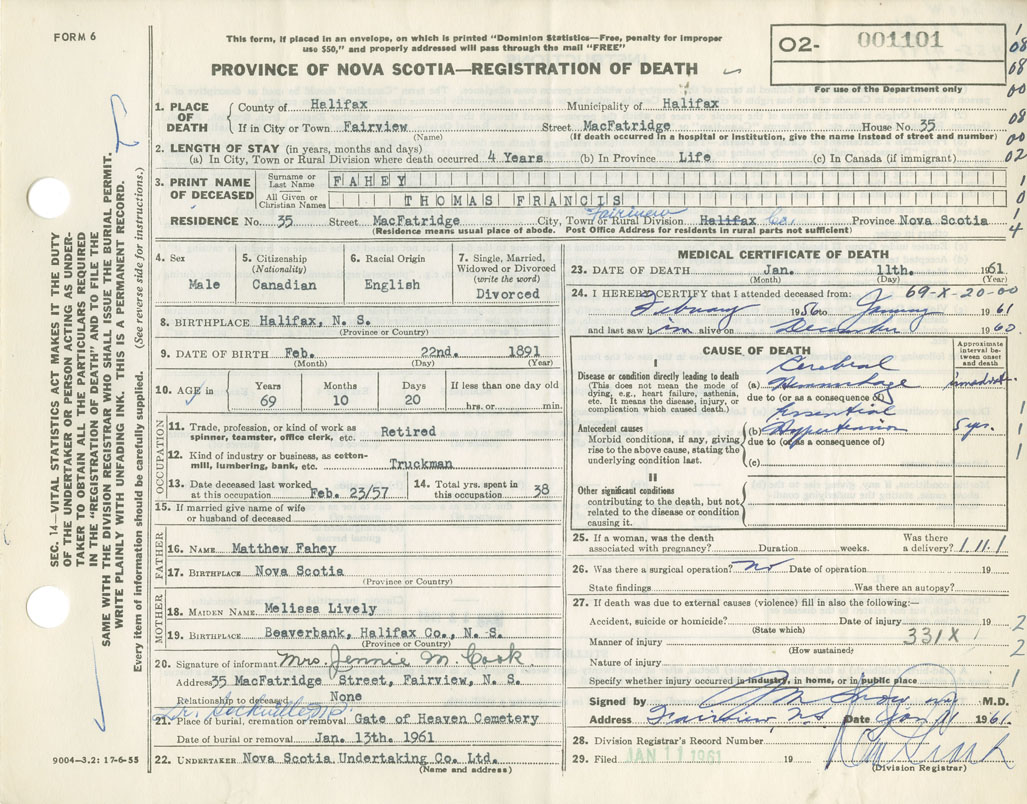 FORM 6
This form, if placed in an envelope, on which is printed "Dominion Statistics—Free, penalty for improper
use $50," and properly addressed will pass through the mail "FREE"
PROVINCE OF NOVA SCOTIA—REGISTRATION OF DEATH
O2- 001101
For use of the Department only
1. PLACE OF DEATH
County of Halifax Municipality of Halifax
If in City or Town Fairview Street MacFatridge House No. 35
(Name) (If death occurred in a hospital or institution, give the name instead of street and number)
2. LENGTH OF STAY (in years, months and days)
(a) In City, Town or Rural Division where death occurred 4 Years (b) In Province Life (c) In Canada (if immigrant)
3. PRINT NAME OF DECEASED
Surname or Last Name FAHEY
All Given or Christian Names THOMAS FRANCIS
RESIDENCE No. 35 Street MacFatridge City, Town or Rural Division Fairview Halifax Co. Province Nova Scotia
(Residence means usual place of abode. Post Office Address for residents in rural parts not sufficient)
4. Sex
Male
5. Citizenship
(Nationality)
Canadian
6. Racial Origin
English
7. Single, Married,
Widowed or Divorced
(write the word)
Divorced
8. BIRTHPLACE Halifax, N. S.
(Province or Country)
9. DATE OF BIRTH Feb. 22nd. 1891
(Month) (Day) (Year)
10. AGE in
Years Months Days If less than one day old
69 10 20 hrs. or min.
OCCUPATION
11. Trade, profession, or kind of work as
spinner, teamster, office clerk, etc. Retired
12. Kind of industry or business, as cotton-
mill, lumbering, bank, etc. Truckman
13. Date deceased last worked
at this occupation Feb. 23/57
14. Total yrs. spent in
this occupation 38
15. If married give name of wife
or husband of deceased
FATHER
16. NAME Matthew Fahey
17. BIRTHPLACE Nova Scotia
(Province or Country)
MOTHER
18. MAIDEN NAME Melissa Lively
19. BIRTHPLACE Beaverbank, Halifax Co., N. S.
(Province or Country)
20. Signature of informant Mrs. Jennie M. Cook.
Address 35 MacFatridge Street, Fairview, N. S.
Relationship to deceased None
Lr. Sackville N.S.
21. Place of burial, cremation or removal Gate of Heaven Cemetery
Date of burial or removal Jan. 13th. 1961
22. UNDERTAKER Nova Scotia Undertaking Co. Ltd.
(Name and address)
9004—3.2: 17-6-55
MEDICAL CERTIFICATE OF DEATH
23. DATE OF DEATH Jan. 11th. 1961
(Month) (Day) (Year)
69-X-20-00
24. I HEREBY CERTIFY that I attended deceased from:
February 1956 to January 1961
and last saw him alive on December 1960.
CAUSE OF DEATH
Approximate interval between onset and death
I
Disease or condition directly leading to death
(This does not mean the mode of
dying, e.g., heart failure, asthenia,
etc. It means the disease, injury, or
complication which caused death.)
(a) Cerebral Hemorrhage immediate
due to (or as a consequence of)
Antecedent causes
Morbid conditions, if any, giving
rise to the above cause, stating the
underlying condition last.
(b) Essential Hypertension 5 yrs.
due to (or as a consequence of)
(c)
II
Other significant conditions
contributing to the death, but not
related to the disease or condition
causing it.
25. If a woman, was the death
associated with pregnancy? Duration weeks.
Was there
a delivery?
26. Was there a surgical operation? No Date of operation 19
State findings Was there an autopsy?
27. If death was due to external causes (violence) fill in also the following:—
Accident, suicide or homicide? Date of injury 19
(State which)
Manner of injury 331X
(How sustained)
Nature of injury
Specify whether injury occurred in industry, in home, or in public place
Signed by M.D.
Address Fairview N.S. Date Jan 11 1961.
28. Division Registrar's Record Number
29. Filed JAN 11 1961 19
(Division Registrar)
SEC. 14—VITAL STATISTICS ACT MAKES IT THE DUTY
OF THE UNDERTAKER OR PERSON ACTING AS UNDER-
TAKER TO OBTAIN ALL THE PARTICULARS REQUIRED
IN THE "REGISTRATION OF DEATH" AND TO FILE THE
SAME WITH THE DIVISION REGISTRAR WHO SHALL ISSUE THE BURIAL PERMIT.
WRITE PLAINLY WITH UNFADING INK. THIS IS A PERMANENT RECORD.
Every item of information should be carefully supplied. (See reverse side for instructions.)